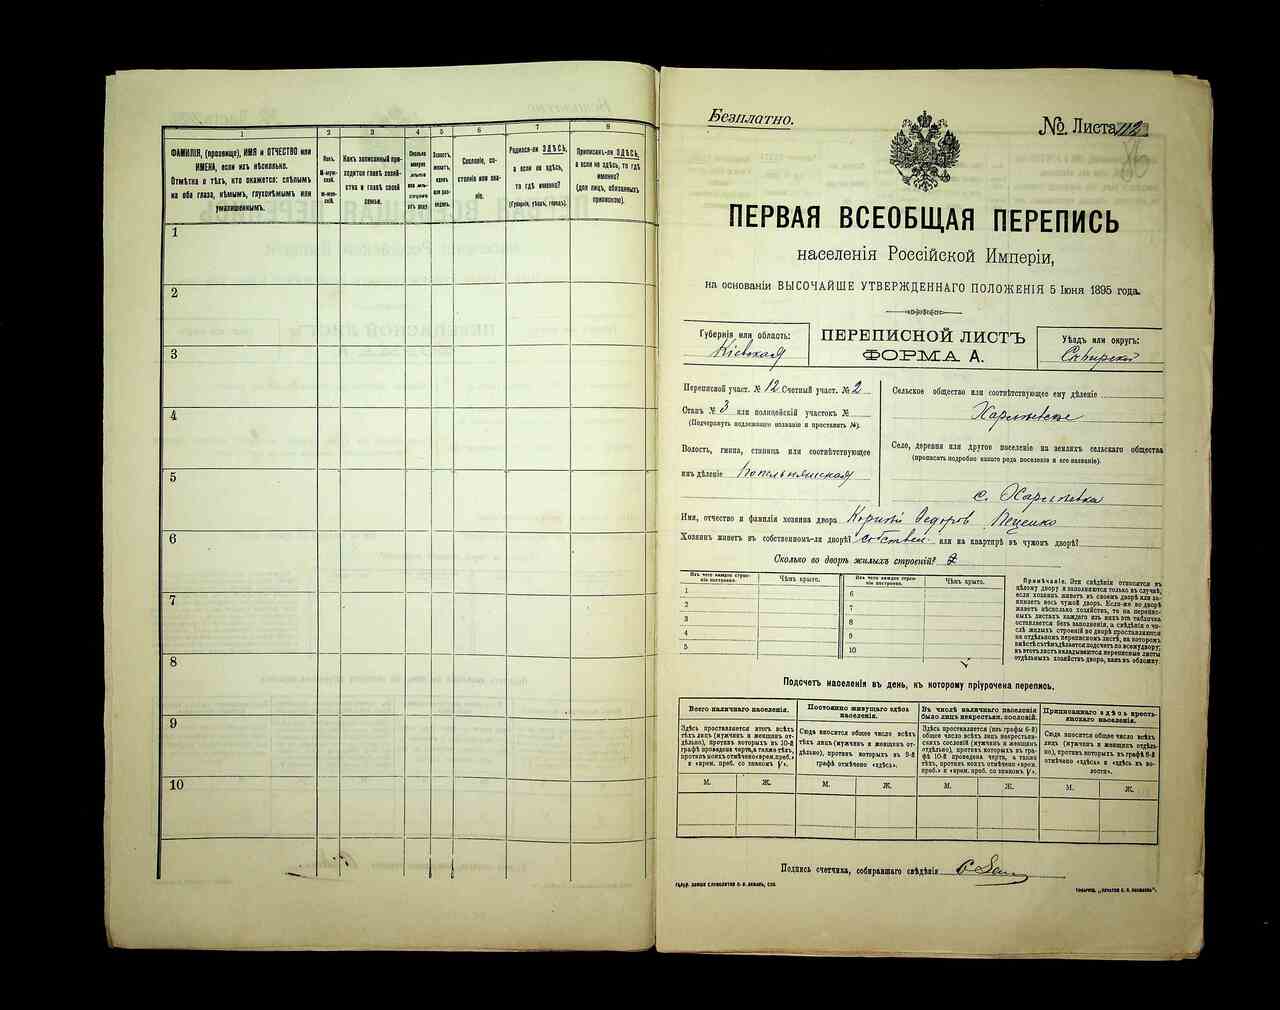 1
2
3
4
5
6
7
8
ФАМИЛІЯ, (прозвище), ИМЯ и ОТЧЕСТВО или
ИМЕНА, если ихъ нѣсколько.
Отмѣтка о тѣхъ, кто окажется: слѣпымъ
на оба глаза, нѣмымъ, глухонѣмымъ или
умалишеннымъ.
Полъ.
М-муж-
ской.
Ж-жен-
скій.
Какъ записанный при-
ходится главѣ хозяй-
ства и главѣ своей
семьи.
Сколько
минуло
лѣтъ
отъ роду.
Сословіе, со-
стояніе или зва-
ніе.
Родился-ли ЗДѢСЬ,
а если не здѣсь,
то гдѣ именно?
(Губернія, уѣздъ, городъ).
Приписанъ-ли ЗДѢСЬ,
а если не здѣсь, то гдѣ
именно?
(для лицъ, обязанныхъ
припискою).
1
2
3
4
5
6
7
8
9
10
Безплатно.
№ Листа 112
86
ПЕРВАЯ ВСЕОБЩАЯ ПЕРЕПИСЬ
населенія Россійской Имперіи,
на основаніи ВЫСОЧАЙШЕ УТВЕРЖДЕННАГО ПОЛОЖЕНІЯ 5 Іюня 1895 года.
Губернія или область:
Кіевская
ПЕРЕПИСНОЙ ЛИСТЪ
ФОРМА А.
Уѣздъ или округъ:
Сквирскій
Переписной участ. № 12 Счетный участ. № 2
Станъ № 3 или полицейскій участокъ №
(Подчеркнуть подлежащее названіе и проставить №).
Волость, гмина, станица или соотвѣтствующее
имъ дѣленіе Попельнянская
Сельское общество или соотвѣтствующее ему дѣленіе
Харлѣевское
Село, деревня или другое поселеніе на земляхъ сельскаго общества
(прописать подробно какого рода поселеніе и его названіе).
с. Харлѣевка
Имя, отчество и фамилія хозяина двора Корнѣй Ѳедоровъ
Хозяинъ живетъ въ собственномъ-ли дворѣ? собствен. или на квартирѣ въ чужомъ дворѣ?
Сколько во дворѣ жилыхъ строеній?
Изъ чего каждое строе-
ніе построено.
Чѣмъ крыто.
Изъ чего каждое строе-
ніе построено.
Чѣмъ крыто.
1
2
3
4
5
6
7
8
9
10
Примѣчаніе. Эти свѣдѣнія относятся къ
цѣлому двору и заполняются только въ случаѣ,
если хозяинъ живетъ въ своемъ дворѣ или за-
нимаетъ весь чужой дворъ. Если-же во дворѣ
живетъ нѣсколько хозяйствъ, то на перепис-
ныхъ листахъ каждаго изъ нихъ эта табличка
оставляется безъ заполненія, а свѣдѣнія о чи-
слѣ жилыхъ строеній во дворѣ проставляются
на отдѣльномъ переписномъ листѣ, на которомъ
вмѣстѣ съ тѣмъ дѣлается подсчетъ по всему двору;
въ этотъ листъ вкладываются переписные листы
отдѣльныхъ хозяйствъ двора, какъ въ обложку.
Подсчетъ населенія въ день, къ которому пріурочена перепись.
Всего наличнаго населенія.
Здѣсь проставляется итогъ всѣхъ
тѣхъ лицъ (мужчинъ и женщинъ от-
дѣльно), противъ которыхъ въ 10-й
графѣ проведена черта, а также тѣхъ,
противъ коихъ отмѣчено «врем. преб.»
и «врем. преб. со знакомъ V».
Постоянно живущаго здѣсь
населенія.
Сюда вносится общее число всѣхъ
тѣхъ лицъ (мужчинъ и женщинъ от-
дѣльно), противъ которыхъ въ 9-й
графѣ отмѣчено «здѣсь».
Въ числѣ наличнаго населенія
было лицъ некрестьян. сословій.
Здѣсь проставляется (изъ графы 6-й)
общее число всѣхъ лицъ некрестьян-
скихъ сословій (мужчинъ и женщинъ
отдѣльно), противъ которыхъ въ гра-
фѣ 10-й проведена черта, а также
тѣхъ, противъ коихъ отмѣчено «врем.
преб.» и «врем. преб. со знакомъ V».
Приписаннаго здѣсь кресть-
янскаго населенія.
Сюда вносится общее число всѣхъ
лицъ (мужчинъ и женщинъ отдѣль-
но), противъ которыхъ въ графѣ 8-й
отмѣчено «здѣсь» и «здѣсь въ во-
лости».
М.
Ж.
М.
Ж.
М.
Ж.
М.
Ж.
Подпись счетчика, собиравшаго свѣдѣнія